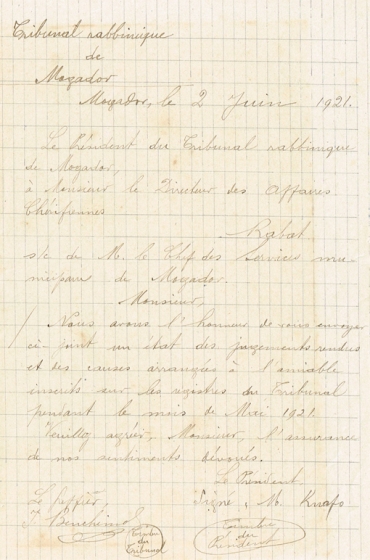 Tribunal rabbinique
de
Mogador
Mogador, le 2 Juin 1921.
Le Président du Tribunal rabbinique
de Mogador,
à Monsieur le Directeur des Affaires
Chérifiennes
Rabat
s/c de M. le Chef des Services mu-
nicipaux de Mogador.
Monsieur,
Nous avons l'honneur de vous envoyer
ci-joint un état des jugements rendus
et des causes arrangées à l'amiable
inscrits sur les registres du Tribunal
pendant le mois de Mai 1921.
Veuillez agréer, Monsieur, l'assurance
de nos sentiments dévoués.
Le Président
Le Greffier, Signé, M. Knafo
Bencheim
Timbre du Tribunal
Timbre du Président